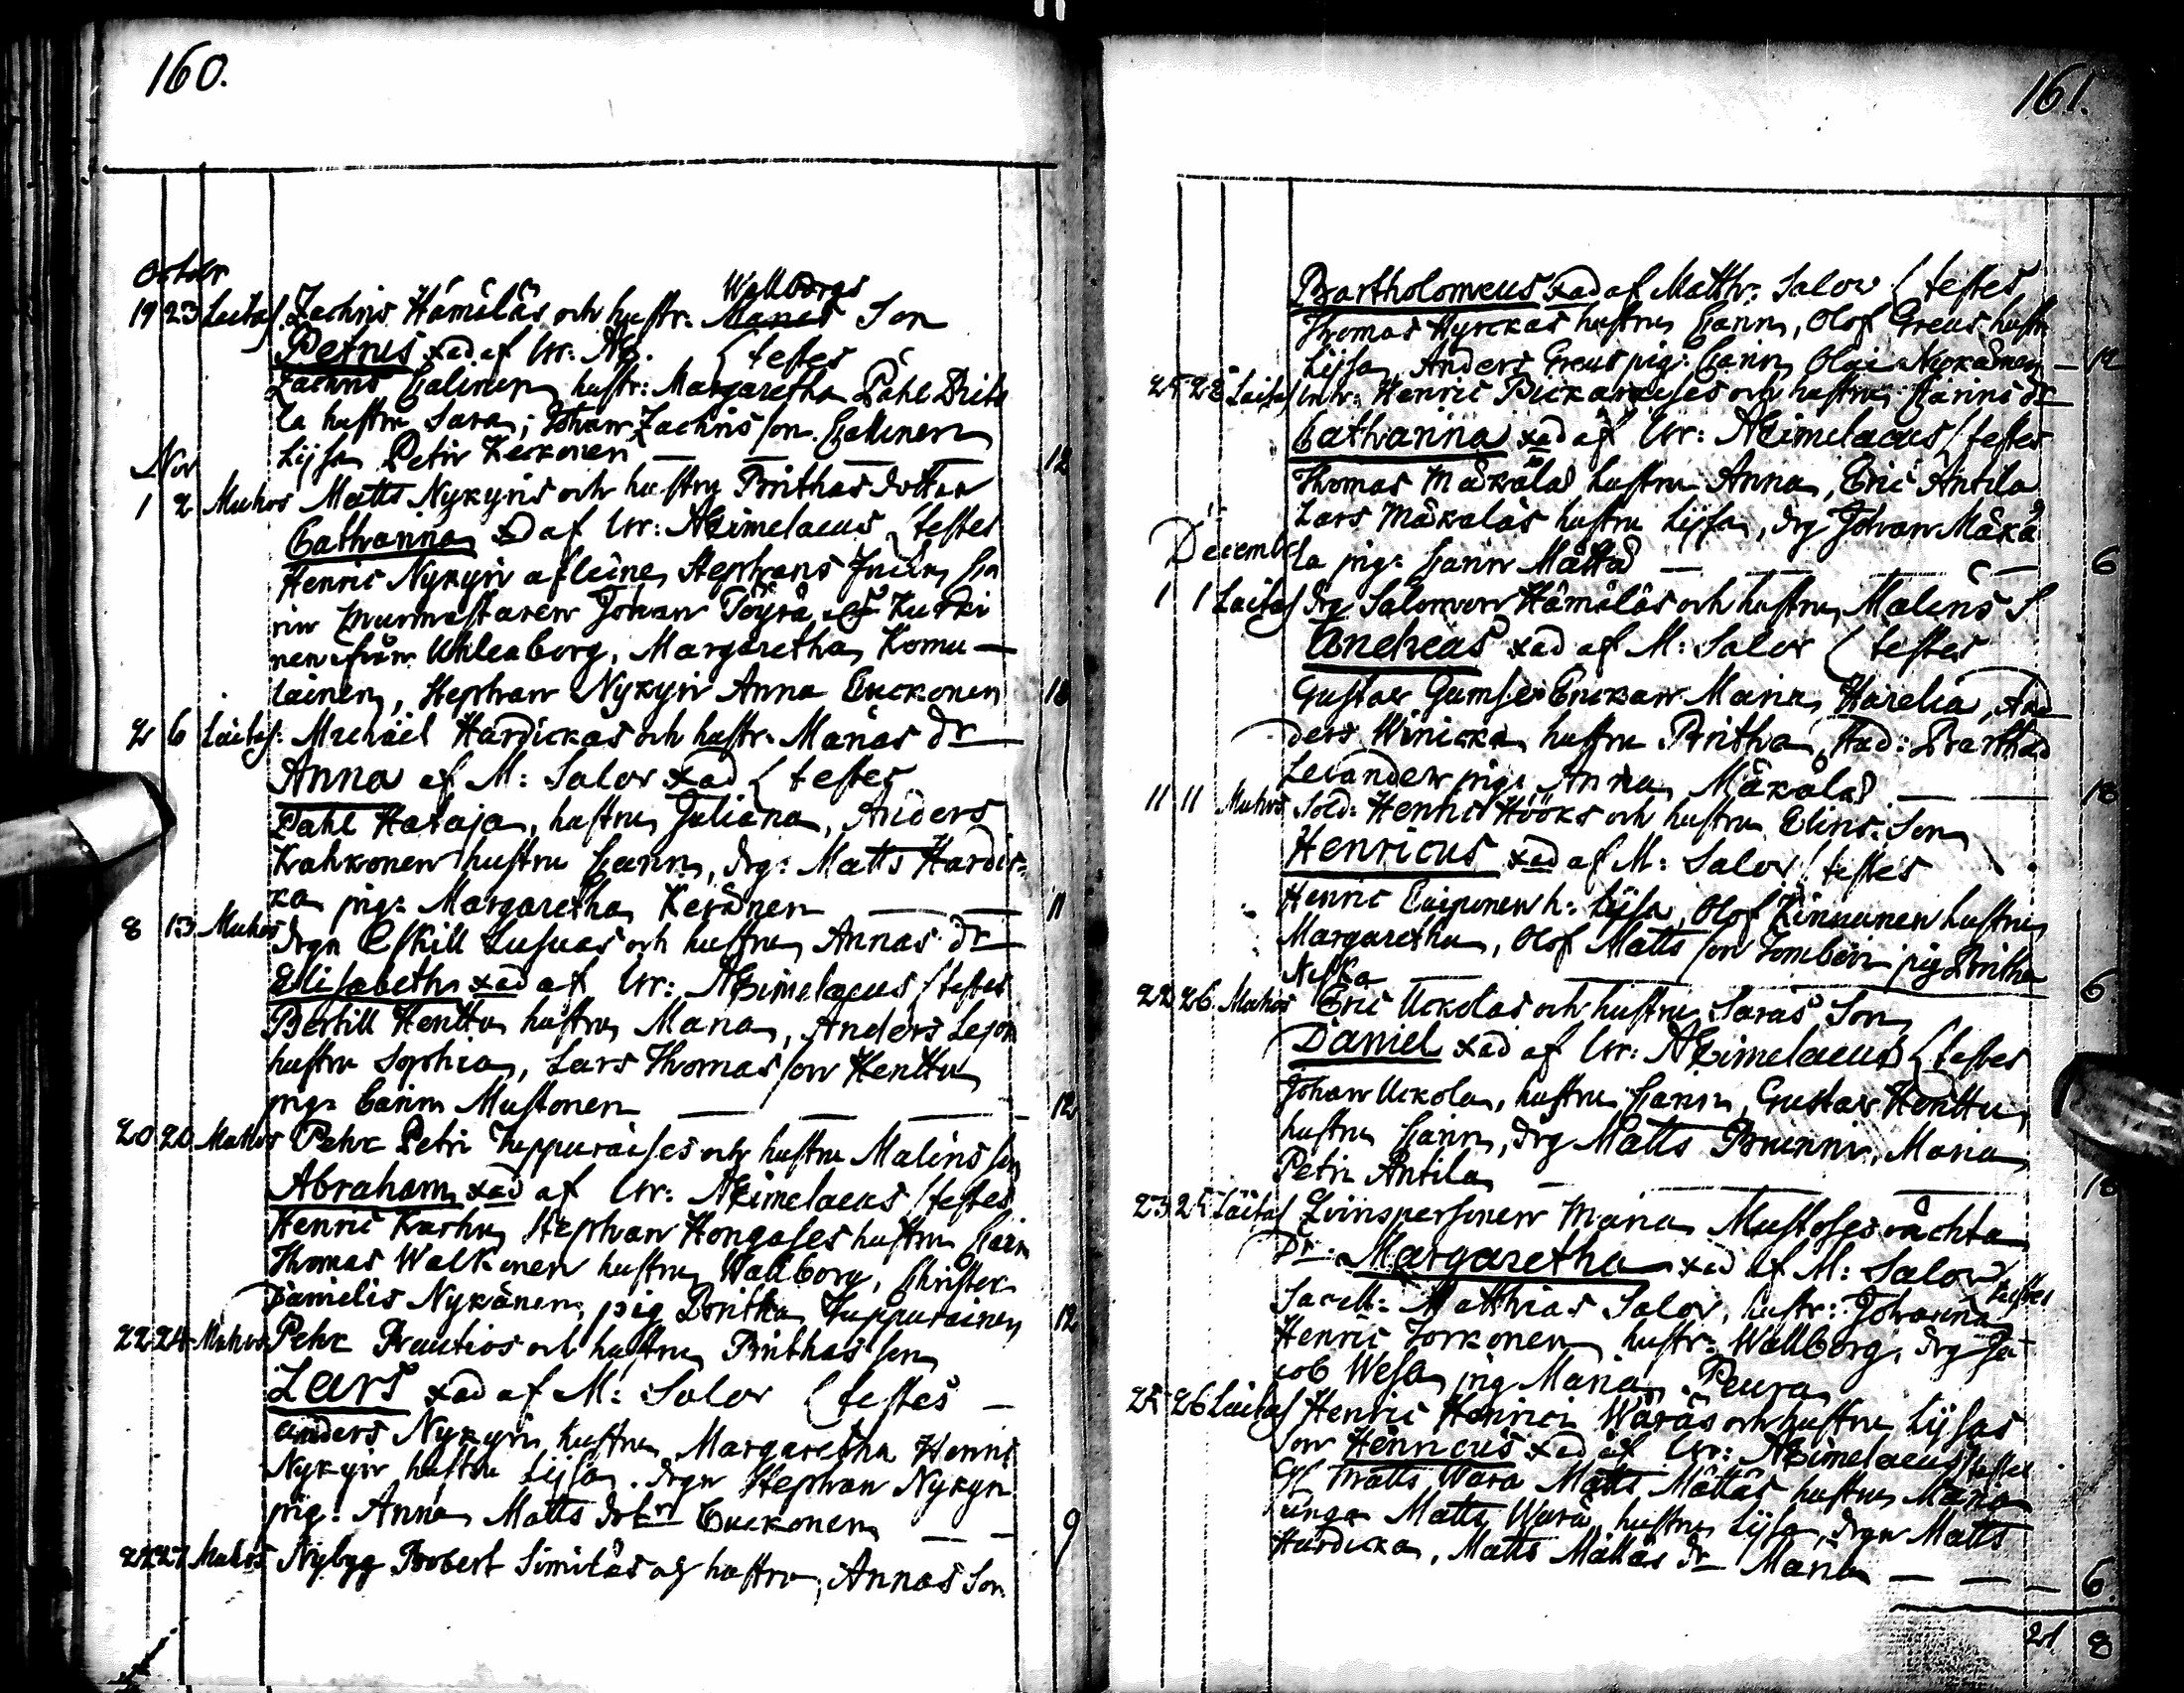 160.
October
Wallborgs
19 23 Laitas Zachris Hämäläs och hustr: Marias Son
Petrus xad af Wr: NB. testes
Zachris Galinen hustr: Margaretha Påhl Drits
la hustru Sara; Johan Zachris son Gallinen
Lijsa Petri Keckonen — — — 12
Nov
1 2 Muhos Matts Nykyris och hustru Brithas dotter
Catharina xad af Wr: Aeimelaeus testes
Henric Nykyri afleine, Stephans Ca
rin Murmästaren Johan Töyrä
nen från Uhleaborg, Margaretha Komu—
lainen, Stephan Nykyri Anna Cuckonen 18
2 6 Laitas: Michäel Hardickas och hustr: Marias dr
Anna af M: Salov xad testes
Påhl Hataja, hustru Juliana, Anders
Kahkonen hustru Carin, drg: Matts Hardic-
ka pig: Margaretha Keränen — — 11
8 13 Muhos drgn Eskill Lusuas och hustru Annas dr
Elisabeth xad af Wr: Aeimelaeus testes
Bertill Henttu hustru Maria, Anders Lejon
hustru Sophia, Lars Thomas son Henttu
pig: Carin Mustonen — — — 12
20 20 Muhos Pehr Petri Juppuraises och hustru Malins son
Abraham xad af Wr: Aeimelaeus testes
Henric Karhu, Stephan Hongases hustru Carin
Thomas Walkonen hustru Wallborg, Christer
Danielis Nykänen, pig Britha Juppurainen 12
22 24 Muhos Pehr Prautios och hustru Brithas son
Lars xad af M: Salov testes —
Anders Nykyri hustru Margaretha Henric
Nykyri hustru Lijsa. drgn Stephan Nykyri
pig: Anna Matts dotr Cuckonen — — 9
27 Muhos Nybyg Robert Similäs och hustru Annas Son
161.
Bartholomeus xad af Matth: Salov testes
Thomas Hyrckas hustru Carin, Olof Greus hustr
Lijsa, Anders Greus pig: Carin Olai — 12
25 28 Laitas Henric Pickaraises och hustru Carins dr
Catharina xad af Wr: Aeimelaeus testes
Thomas Mäkälä hustru Anna, Eric Antila
Lars Mäkäläs hustru Lijsa, drg Johan Mäkä
Decemb
la pig: Carin Mättä — — — 6
1 1 Laitas drg Salomon Hämäläs och hustru Malins S
Andreas xad af M: Salov testes
Gustav Gumse Enckan Maria Harelia, An
ders Winicka hustru Britha, Stud: Barthold
Levander pig: Anna Mäkälä — — 18
11 11 Muhos Sold: Henric Hööks och hustru Elins Son
Henricus xad af M: Salov testes
Henric Caiponen h: Lijsa, Olof Kinnunen hustru
Margaretha, Olof Matts son Tomberi pig Britha
Niska — — — 6
22 26 Muhos Eric Uckolas och hustru Saras Son
Daniel xad af Wr: Aeimelaeus testes
Johan Uckola, hustru Carin, Gustav Henttu,
hustru Carin, drg Matts Brunni, Maria
Petri Antila — — — 18
23 25 Laitas Qvinspersonen Maria Mustoses oächta
Dr Margaretha xad af M: Salov testes
Sacell: Matthias Salov, hustr: Johanna
Henric Torkonen hustr: Wallborg, drg Ja-
cob Wesa pig Maria Peura
25 26 Laitas Henric Henrici Wäräs och hustru Lijsas
son Henricus xad af Wr: Aeimelaeus testes
Matts Wara Matts Mättäs hustru Maria
unga Matts Wara hustru Lijsa, drgn Matts
Hardicka, Matts Mättäs dr Maria — — — 6.
21 8